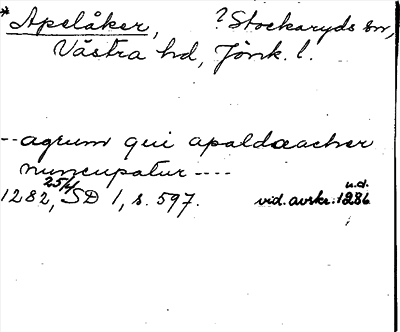 *Apelåker, ?Stockaryds sn,
Västra hd, Jönk. l.
--agrum qui apaldæacher
nuncupatur----
1282 25/4, SD 1, s. 597. vid. avskr. u.d. 1286